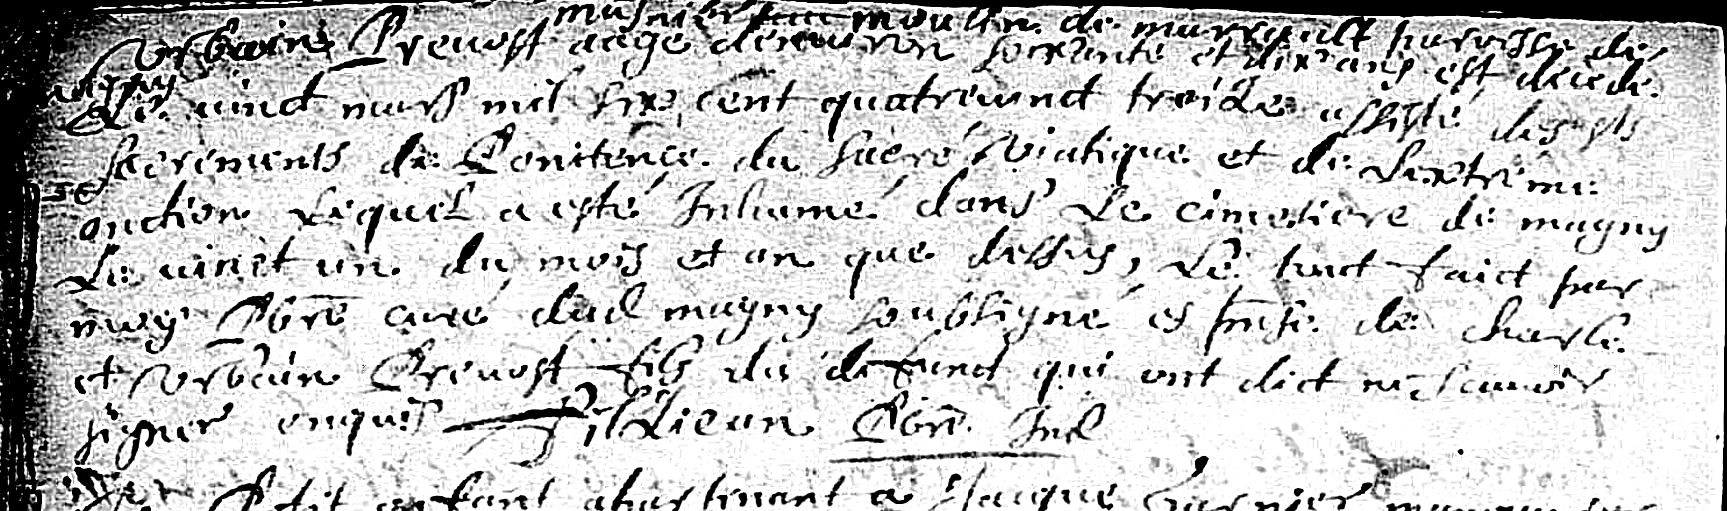 musnier au moulin de marsault paroisse de
Vrbain Preuost aagé denuiron soixante et dix ans est decedé
magny
Le vinct mars mil six cent quatreuinct troize assisté des sts
sacrements de Penitence du sacré Viatique et de Lextreme
onction Lequel a esté Inhumé dans Le cimetiere de magny
Le vinct un du mois et an que dessus, Le tout faict par
moy Pbre curé dud magny soubsigné es pnse de charle
et Vrbain Preuost fils du defunct qui ont dict ne scauoir
signer enquis Pbre
Petit enfant apartenant a Jacque